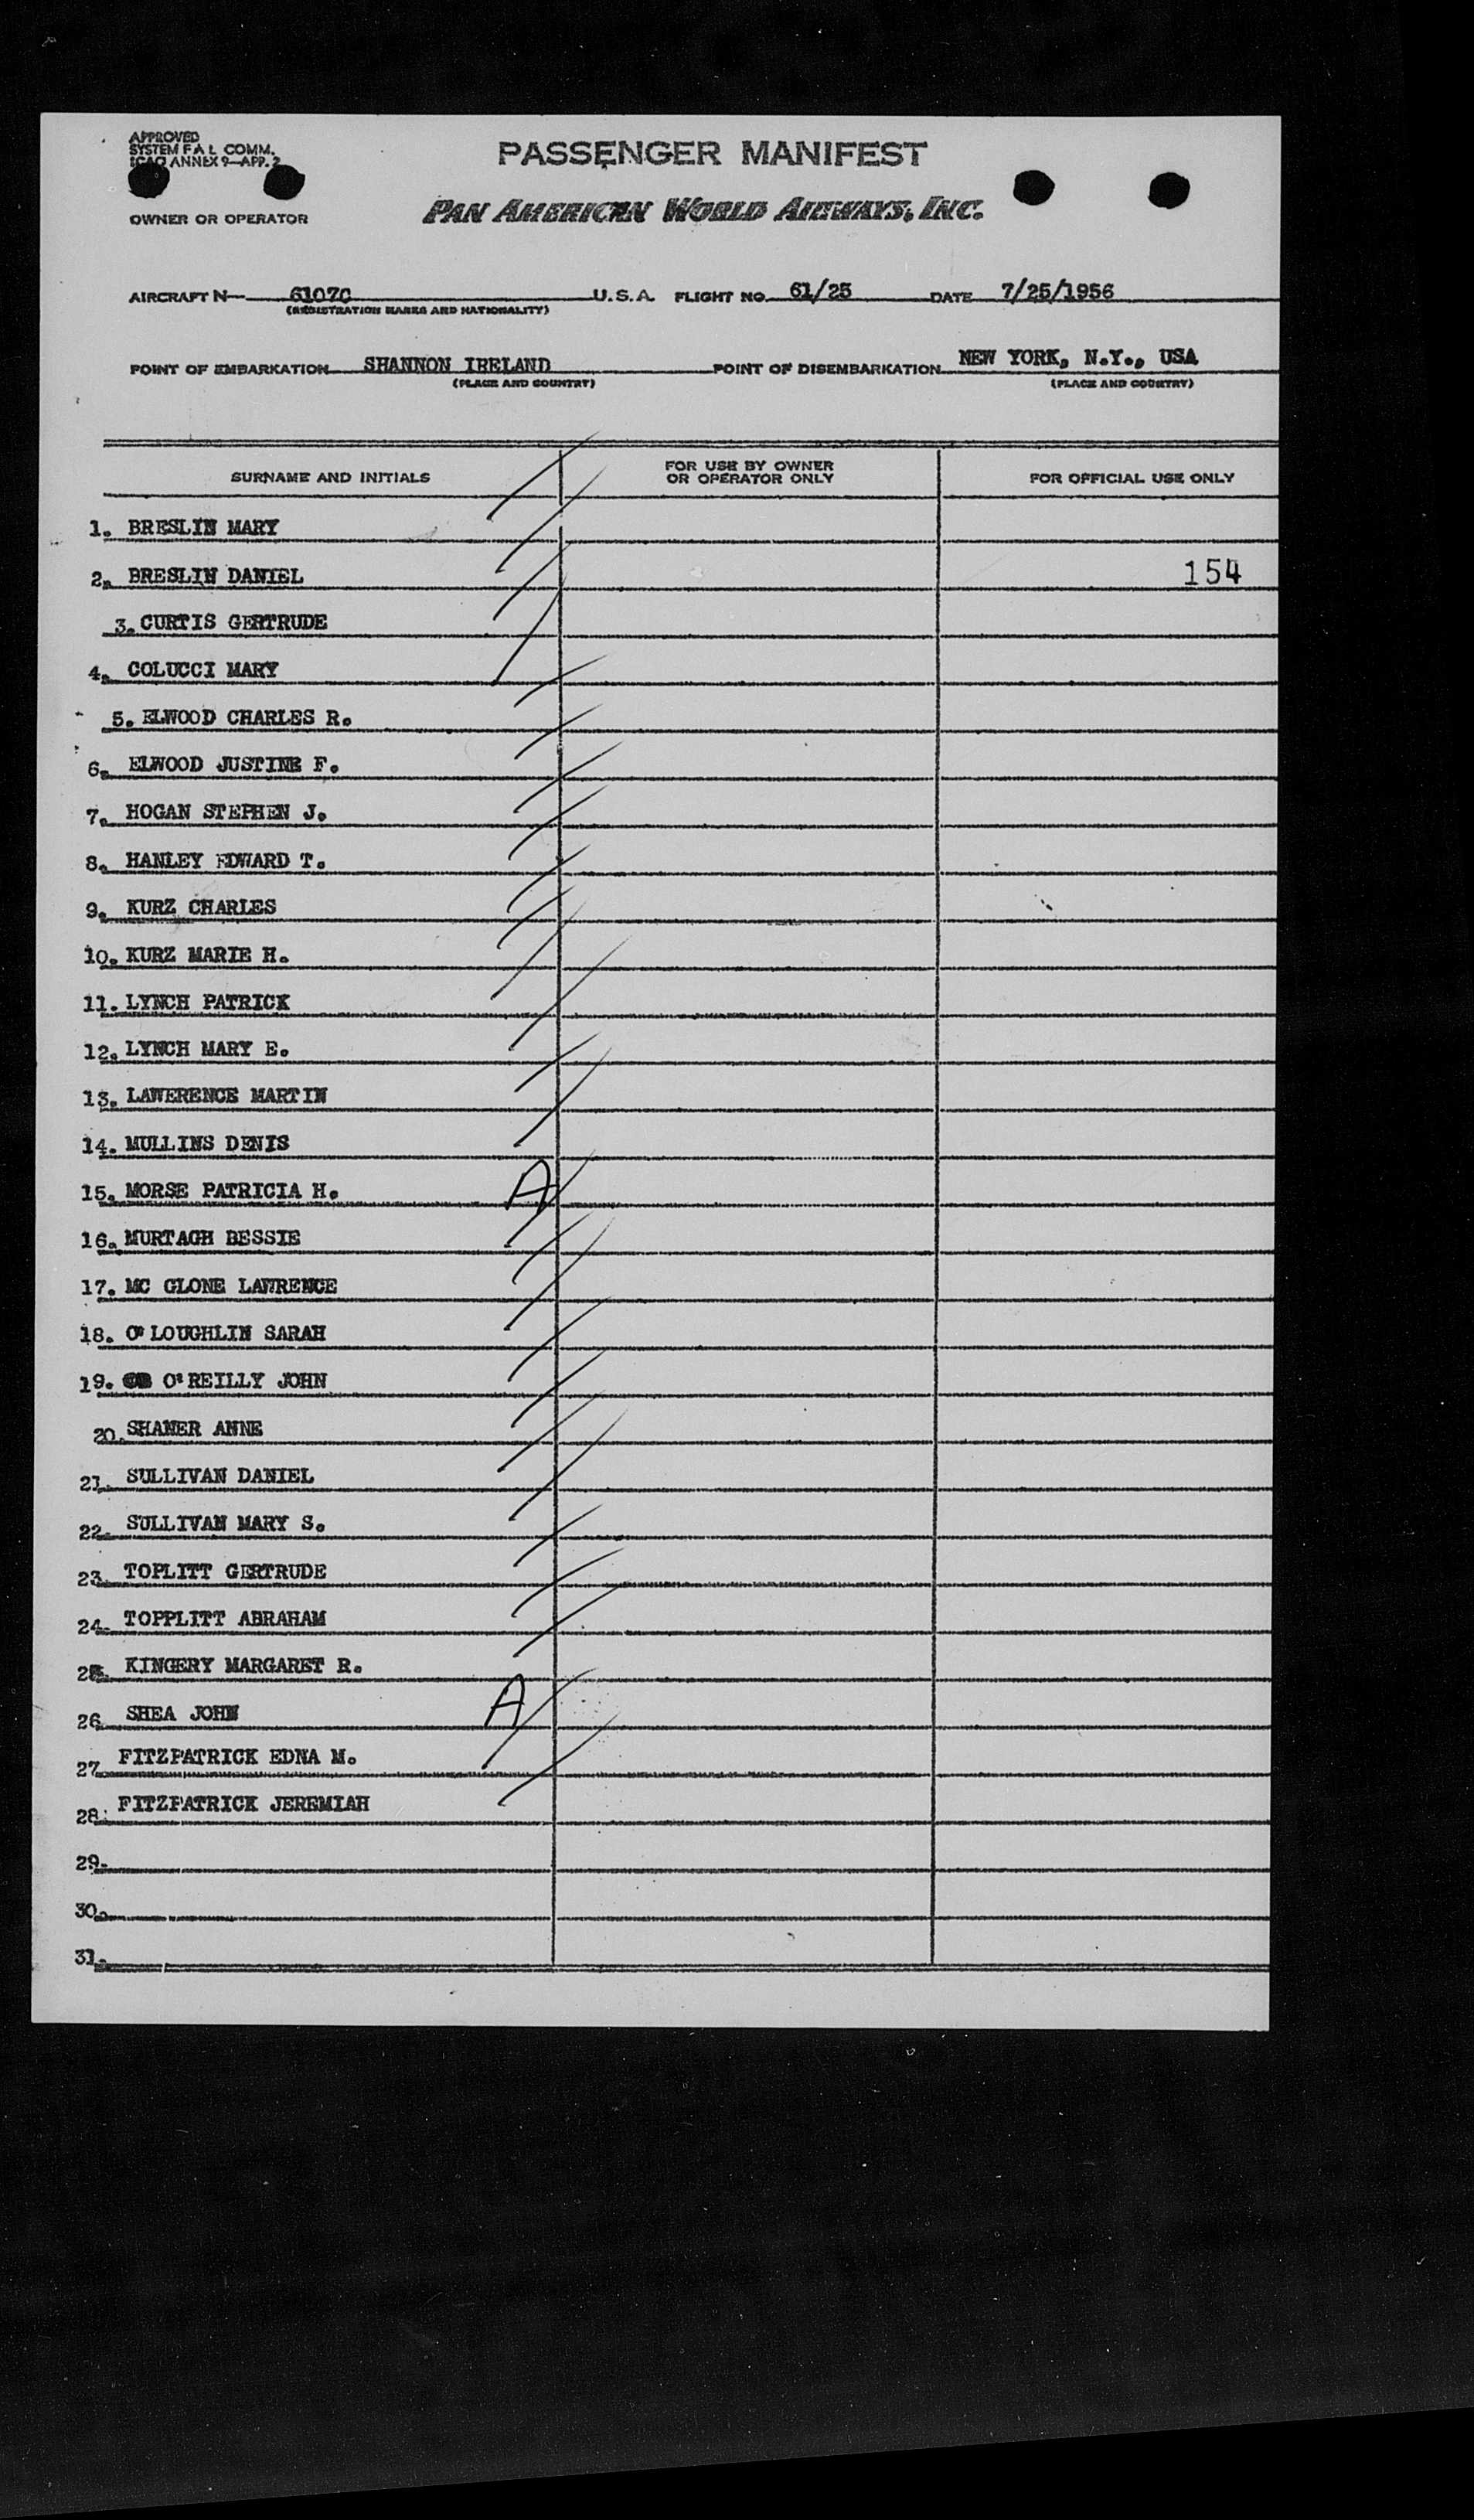 APPROVED
SYSTEM F A L COMM.
ICAO ANNEX 9—APP. 2
PASSENGER MANIFEST
OWNER OR OPERATOR
PAN AMERICAN WORLD AIRWAYS, INC.
AIRCRAFT N— 6107C U.S.A. FLIGHT NO. 61/25 DATE 7/25/1956
(REGISTRATION MARKS AND NATIONALITY)
POINT OF EMBARKATION SHANNON IRELAND POINT OF DISEMBARKATION NEW YORK, N.Y., USA
(PLACE AND COUNTRY) (PLACE AND COUNTRY)
SURNAME AND INITIALS FOR USE BY OWNER OR OPERATOR ONLY FOR OFFICIAL USE ONLY
1. BRESLIN MARY
2. BRESLIN DANIEL 154
3. CURTIS GERTRUDE
4. COLUCCI MARY
5. ELWOOD CHARLES R.
6. ELWOOD JUSTINE F.
7. HOGAN STEPHEN J.
8. HANLEY EDWARD T.
9. KURZ CHARLES
10. KURZ MARIE H.
11. LYNCH PATRICK
12. LYNCH MARY E.
13. LAWERENCE MARTIN
14. MULLINS DENIS
15. MORSE PATRICIA H. A
16. MURTAGH BESSIE
17. MC GLONE LAWRENCE
18. O'LOUGHLIN SARAH
19. O'REILLY JOHN
20. SHANER ANNE
21. SULLIVAN DANIEL
22. SULLIVAN MARY S.
23. TOPLITT GERTRUDE
24. TOPPLITT ABRAHAM
25. KINGERY MARGARET R.
26. SHEA JOHN A
27. FITZPATRICK EDNA M.
28. FITZPATRICK JEREMIAH
29.
30.
31.